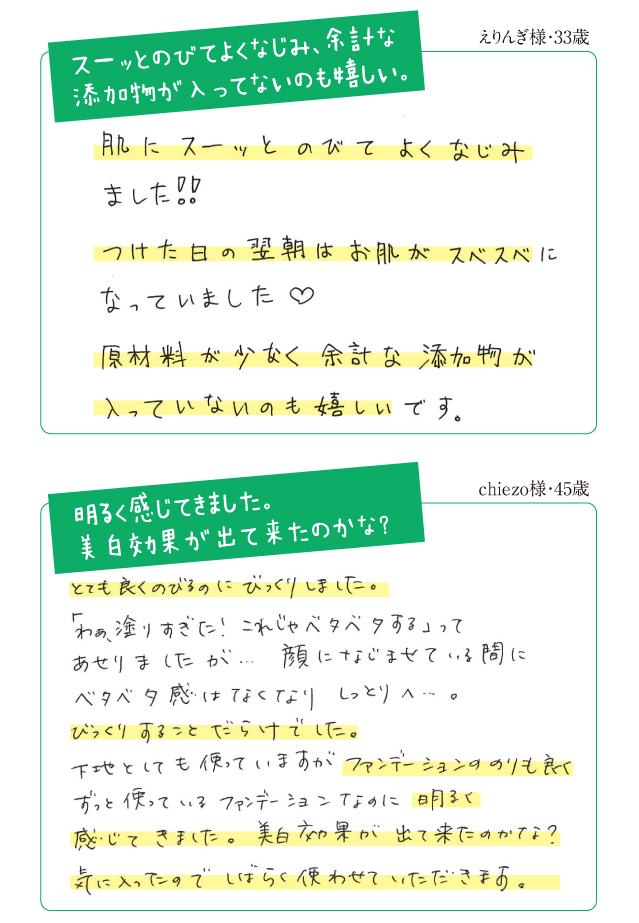 えりんぎ様・33歳
スーッとのびてよくなじみ、余計な
添加物が入ってないのも嬉しい。
肌にスーッとのびてよくなじみ
ました!!
つけた日の翌朝はお肌がスベスベに
なっていました♡
原材料が少なく余計な添加物が
入っていないのも嬉しいです。
chiezo様・45歳
明るく感じてきました。
美白効果が出て来たのかな?
とても良くのびるのにびっくりしました。
「わぁ、塗りすぎた!これじゃベタベタする」って
あせりましたが… 顔になじませている間に
ベタベタ感はなくなり しっとりへ…。
びっくりすることだらけでした。
下地としても使っていますがファンデーションののりも良く
ずっと使っているファンデーションなのに 明るく
感じてきました。美白効果が出て来たのかな?
気に入ったのでしばらく使わせていただきます。